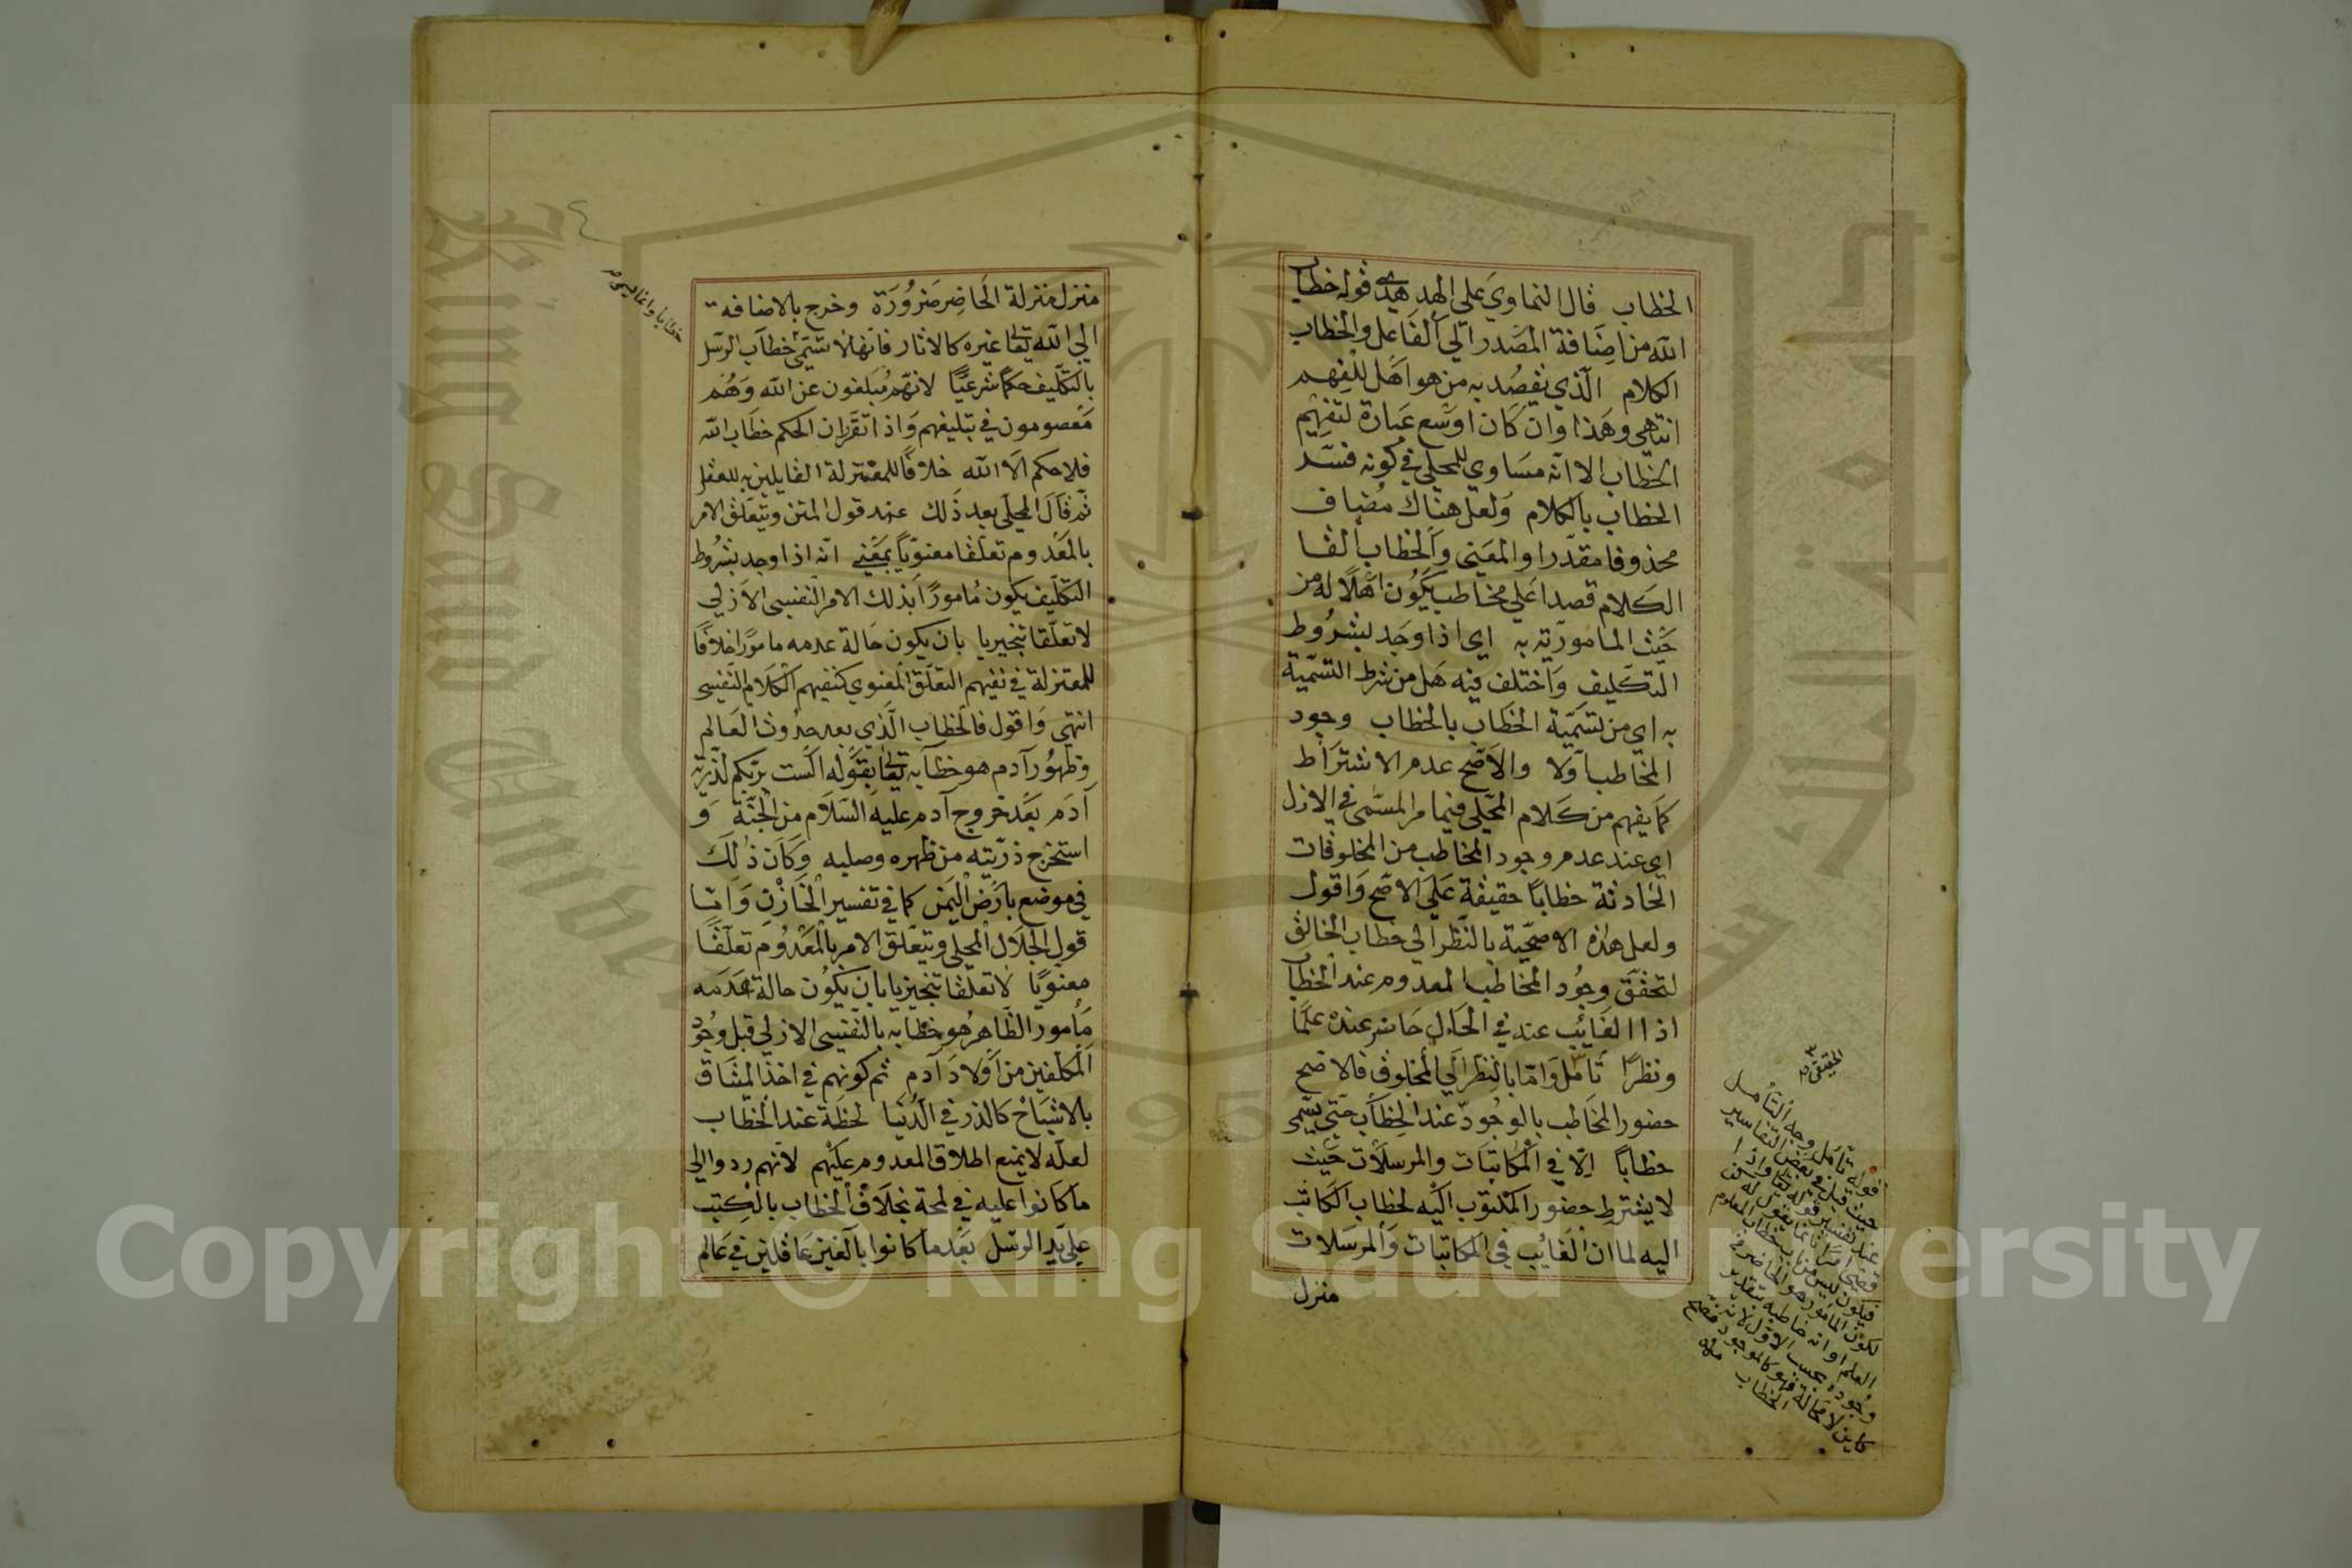 الخطاب قال النماوي على الهدهدي قوله خطاب
الله من اضافة المصدر الى الفاعل والخطاب
الكلام الذي يقصد به من هو اهل للفهم
انتهى وهذا وان كان اوسع عبارة لتفهيم
الخطاب الا انه مساوي للمحلي في كونه فسّر
الخطاب بالكلام ولعل هناك مضاف
محذوفا مقدّرا والمعنى والخطاب القا
الكلام قصدا على مخاطب يكون اهلًا له من
حيث المامورية به اي اذا وجد بشروط
التكليف واختلف فيه هل من شرط التسمية
به اي من تسمية الخطاب بالخطاب وجود
المخاطب اولا والاصح عدم الاشتراط
كما يفهم من كلام المحلي فيما مر المسمى في الازل
اي عند عدم وجود المخاطب من المخلوقات
الحادثة خطابًا حقيقة على الاصح واقول
ولعل هذه الاصحية بالنظر الى خطاب الخالق
لتحقق وجود المخاطب المعدوم عند الخطاب
اذ الغائب عند في الحال حاضر عنده علمًا
ونظرًا تأمل وامّا بالنظر الى المخلوق فالاصح
حضور المخاطب بالوجود عند الخطاب حتى يسمى
خطابًا الّا في المكاتبات والمرسلات حيث
لا يشترط حضور المكتوب اليه لخطاب الكاتب
اليه لما ان الغائب في المكاتبات والمرسلات
منزل
الحقيقي
قوله تأمل وجه التأمل
حيث قيل في بعض التفاسير
عند تفسير قوله تعالى واذا
قضى امرا فانما يقول له كن
فيكون ليس من باب خطاب المعدوم
لكون المأمور هو الحاضر في
العلم او انه خاطبه بتقدير
وجوده بحسب الاول لانه
كاين لا محالة فهو كالموجود فصح
الخطاب منه
منزل منزلة الحاضر ضرورة وخرج بالاضافة
الى الله تعالى غيره كالاثار فانها لا تسمى خطاب الرسل
بالتكليف حكمًا شرعيًا لانهم مبلغون عن الله وهم
معصومون في تبليغهم واذا تقرر ان الحكم خطاب الله
فلا حكم الا الله خلافًا للمعتزلة القايلين به للعقل
ثم قال المحلي بعد ذلك عند قول المتن ويتعلق الامر
بالمعدوم تعلقا معنويًا بمعنى انه اذا وجد بشروط
التكليف يكون مامورًا بذلك الامر النفسي الازلي
لا تعلقا تنجيزيا بان يكون حالة عدمه مامورًا خلافًا
للمعتزلة في نفيهم التعلق المعنوي كنفيهم الكلام النفسي
انتهى واقول فالخطاب الذي بعد حدوث العالم
وظهور آدم هو خطابه تعالى بقوله الست بربكم لذرية
آدم بعد خروج آدم عليه السلام من الجنة و
استخرج ذريته من ظهره وصلبه وكان ذلك
في موضع بارض اليمن كما في تفسير الخازن وامّا
قول الجلال المحلي ويتعلق الامر بالمعدوم تعلقًا
معنويًا لا تعلقا تنجيزيا بان يكون حالة عدمه
مأمورا الظاهر هو خطابه بالنفسي الازلي قبل وجود
المكلفين من اولاد آدم ثم كونهم في اخذ الميثاق
بالاشباح كالذر في الدنيا لحظة عند الخطاب
لعله لا يمنع اطلاق المعدوم عليهم لانهم ردوا الى
ما كانوا عليه في لمحة بخلاف الخطاب بالكتب
على يد الرسل بعد ما كانوا بالغين عاقلين في عالم
خطابا وانما ليس
Copyright © King Saud University